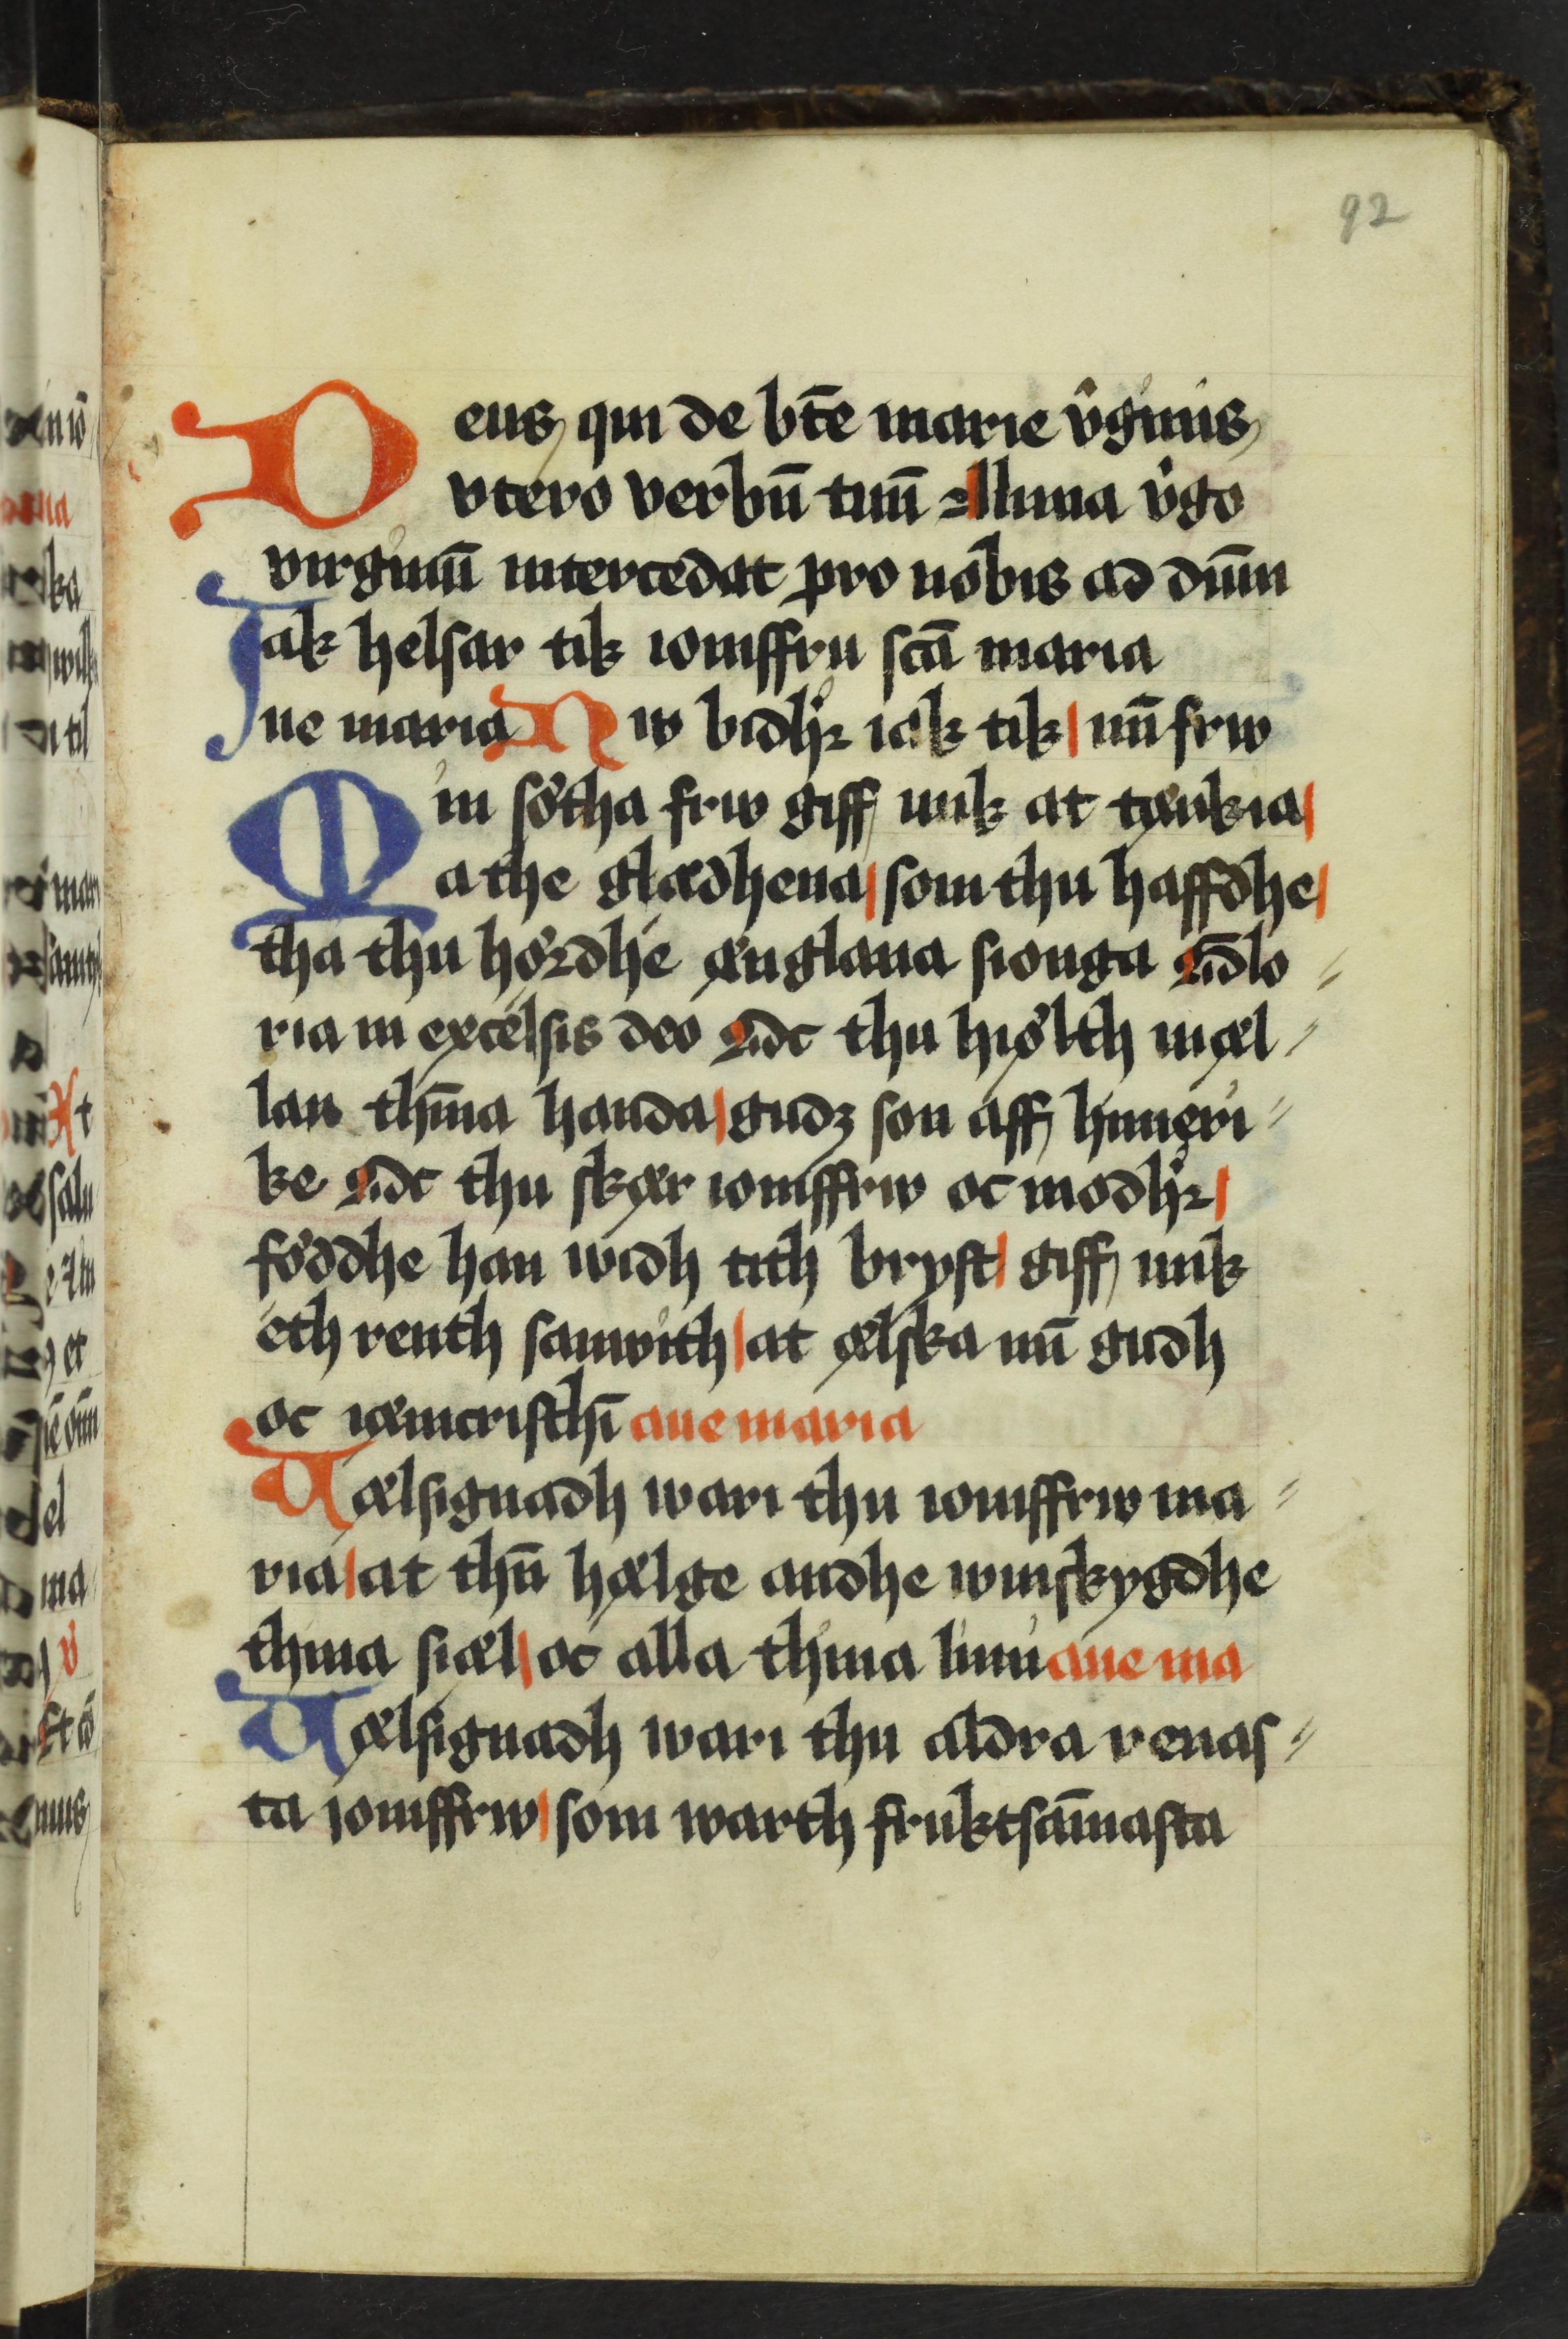 92
Deus qui de bt̄e marie v̾ginis
vtero verbū tuū Alma v̾go
virginū intercedat pro nobis ad dn̄m
Jak helsar tik iomffru sc̄a maria
Aue maria Nw bidh̾r iak tik | mī frw
Min sötha frw giff mik at tænkia |
a the glædhena | som thu haffdhe |
tha thu hördhe ænglana sionga Glo⸗
ria in excelsis deo At thu hiölth mæl⸗
lan thīna handa | gudz son aff himeri⸗
ke At thu skær iomffrw oc modh̾r |
föddhe han widh tith bryst | giff mik
eth renth samwith | at ælska mī gudh
oc iæmcristhī aue maria
Uælsignadh wari thu iomffrw ma⸗
ria | at thn̄ hælge andhe wmskygdhe
thina siæl | oc alla thina limi aue ma
Uælsignadh wari thu aldra renas⸗
ta jomffrw | som warth fruktsām̄asta